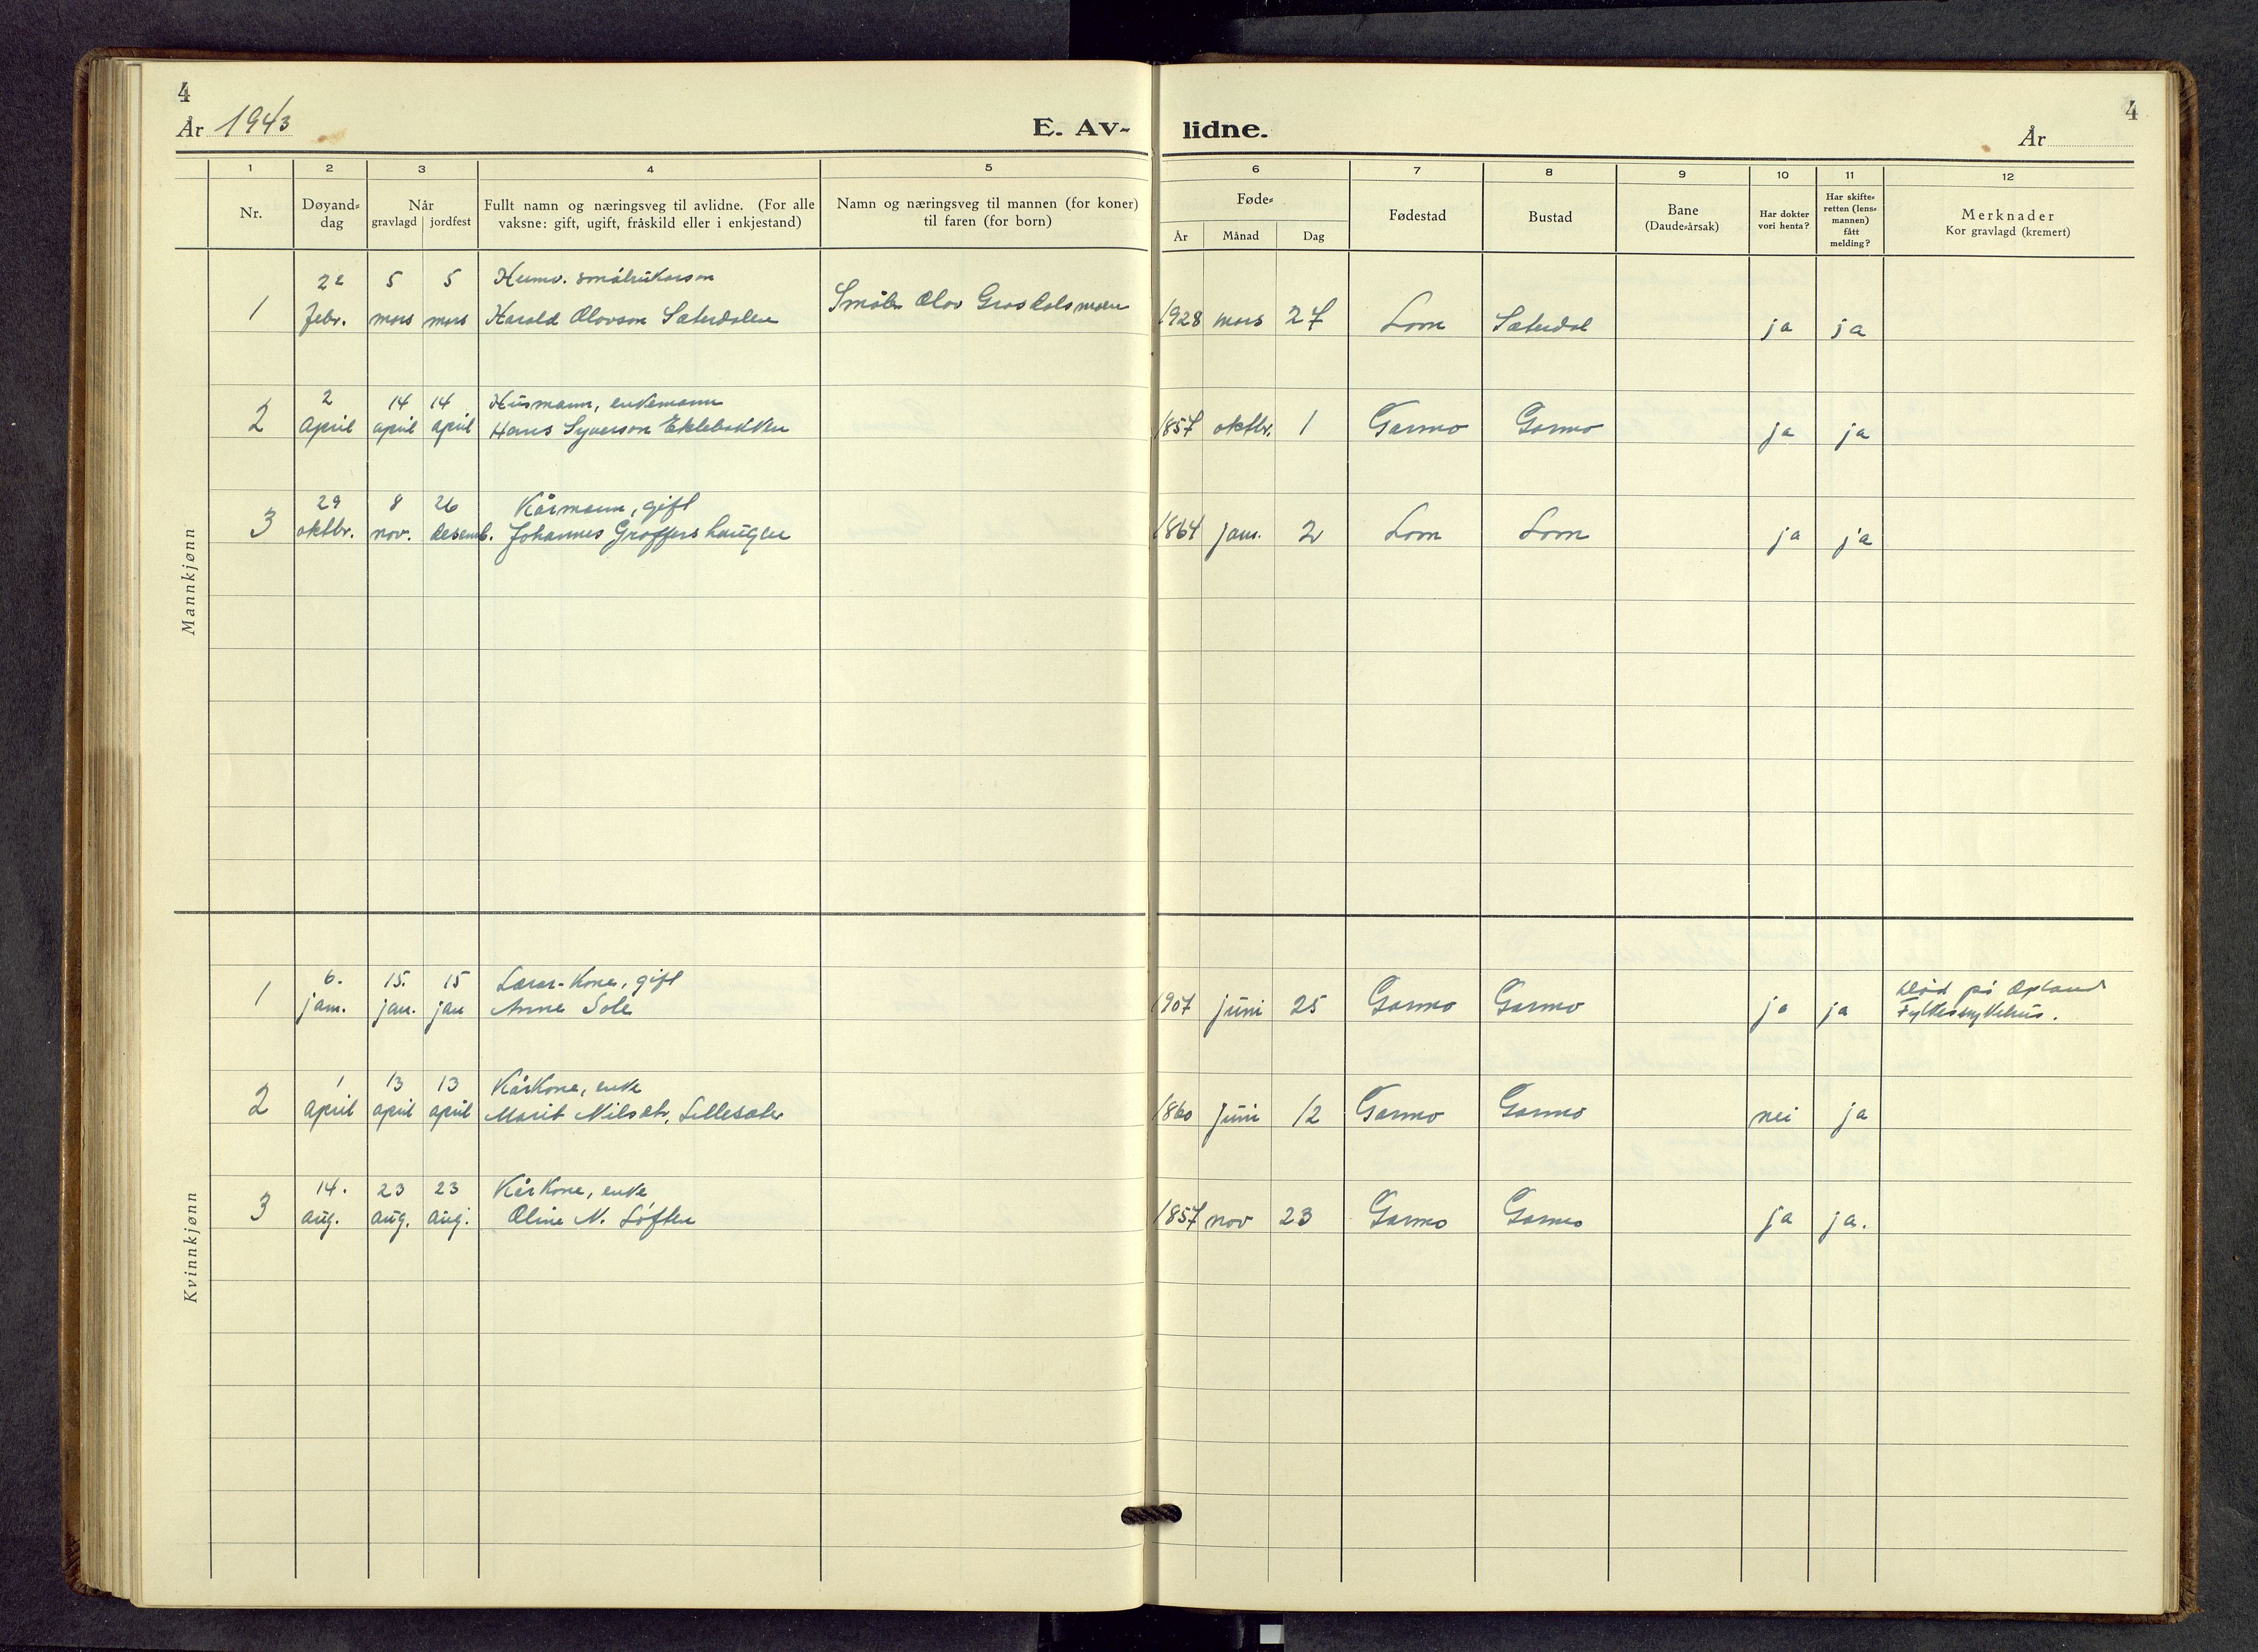 4
År 1943
E. Av-
lidne.
4
År
1
2
3
4
5
6
7
8
9
10
11
12
Nr.
Døyand-
dag
Når
gravlagd jordfest
Fullt namn og næringsveg til avlidne. (For alle
vaksne: gift, ugift, fråskild eller i enkjestand)
Namn og næringsveg til mannen (for koner)
til faren (for born)
Føde-
År Månad Dag
Fødestad
Bustad
Bane
(Daude-årsak)
Har dokter
vori henta?
Har skifte-
retten (lens-
mannen)
fått
melding?
Merknader
Kor gravlagd (kremert)
Mannkjønn
22 5 5 Heimv. småbrukarson
1 febr. mars mars Harald Olovson Sæterdalen Småbr. Olov Grosdalsmoen 1928 mars 27 Lom Sæterdal ja ja
2 14 14 Husmann, enkemann
2 April april april Hans Syverson Eklebakken 1857 oktbr. 1 Garmo Garmo ja ja
29 8 26 Kårmann, gift
3 oktbr. nov. desemb. Johannes Groffershaugen 1864 jan. 2 Lom Lom ja ja
Kvinnkjønn
6. 15. 15 Lærar-Kone, gift død på Opland
1 jan. jan. jan Anne Sole 1907 juni 25 Garmo Garmo ja ja Fylkessykehus.
1 13 13 Kårkone, enke
2 April april april Marit Nilsdtr. Lillesæter 1860 juni 12 Garmo Garmo nei ja
14. 23 23 Kårkone, enke
3 aug. aug. aug. Oline N. Løften 1857 nov 23 Garmo Garmo ja ja.